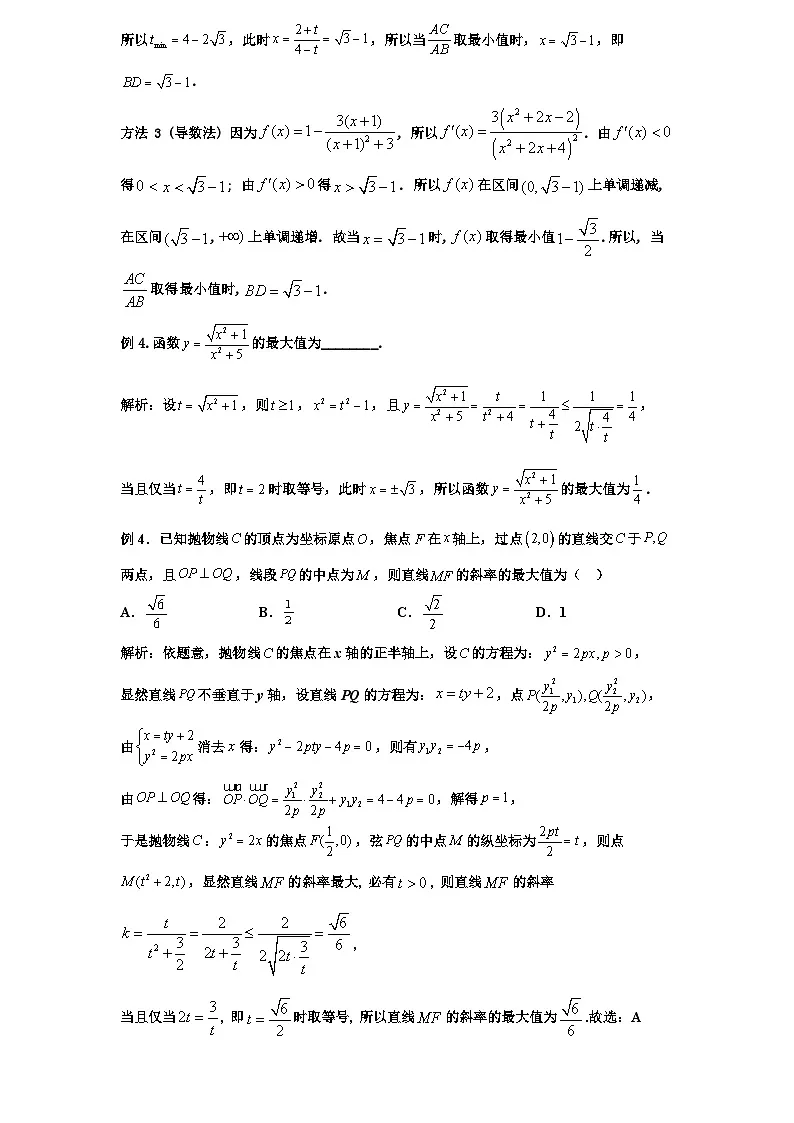 所以 t_min = 4 − 2√3，此时 x = (2+t)/(4−t) = √3 − 1，所以当 AC/AB 取最小值时，x = √3 − 1，即
BD = √3 − 1．
方法 3 (导数法) 因为 f(x) = 1 − 3(x+1)/((x+1)²+3)，所以 f′(x) = 3(x²+2x−2)/(x²+2x+4)²．由 f′(x) < 0
得 0 < x < √3 − 1；由 f′(x) > 0 得 x > √3 − 1．所以 f(x) 在区间 (0, √3 − 1) 上单调递减,
在区间 (√3 − 1, +∞) 上单调递增．故当 x = √3 − 1 时, f(x) 取得最小值 1 − √3/2．所以, 当
AC/AB 取得最小值时, BD = √3 − 1．
例 4.函数 y = √(x²+1)/(x²+5) 的最大值为________.
解析：设 t = √(x²+1)，则 t ≥ 1，x² = t² − 1，且 y = √(x²+1)/(x²+5) = t/(t²+4) = 1/(t+4/t) ≤ 1/(2√(t·4/t)) = 1/4，
当且仅当 t = 4/t，即 t = 2 时取等号，此时 x = ±√3，所以函数 y = √(x²+1)/(x²+5) 的最大值为 1/4．
例 4．已知抛物线 C 的顶点为坐标原点 O，焦点 F 在 x 轴上，过点 (2,0) 的直线交 C 于 P,Q
两点，且 OP ⊥ OQ，线段 PQ 的中点为 M，则直线 MF 的斜率的最大值为（ ）
A．√6/6 B．1/2 C．√2/2 D．1
解析：依题意，抛物线 C 的焦点在 x 轴的正半轴上，设 C 的方程为：y² = 2px, p > 0，
显然直线 PQ 不垂直于 y 轴，设直线 PQ 的方程为：x = ty + 2，点 P(y₁²/2p, y₁), Q(y₂²/2p, y₂)，
由 {x = ty + 2, y² = 2px 消去 x 得：y² − 2pty − 4p = 0，则有 y₁y₂ = −4p，
由 OP ⊥ OQ 得：OP · OQ = y₁²/2p · y₂²/2p + y₁y₂ = 4 − 4p = 0，解得 p = 1，
于是抛物线 C：y² = 2x 的焦点 F(1/2, 0)，弦 PQ 的中点 M 的纵坐标为 2pt/2 = t，则点
M(t² + 2, t)，显然直线 MF 的斜率最大，必有 t > 0，则直线 MF 的斜率
k = t/(t²+3/2) = 2/(2t+3/t) ≤ 2/(2√(2t·3/t)) = √6/6，
当且仅当 2t = 3/t，即 t = √6/2 时取等号，所以直线 MF 的斜率的最大值为 √6/6 .故选：A